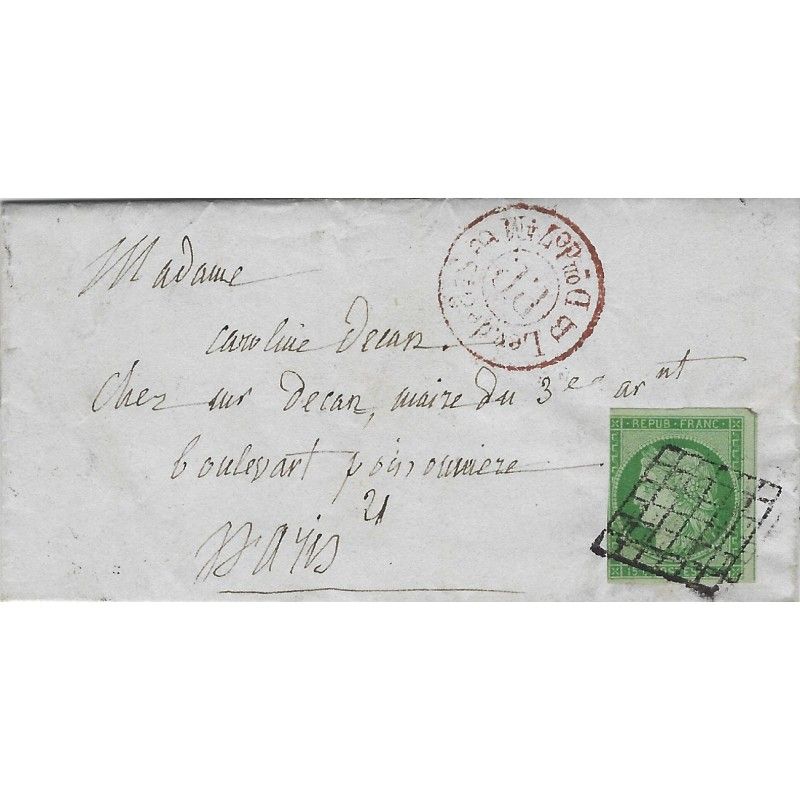 Madame
caroline Decan.
chez mr Decan, maire du 3e arnt
boulevart poissonniere
21
Paris
REPUB FRANC